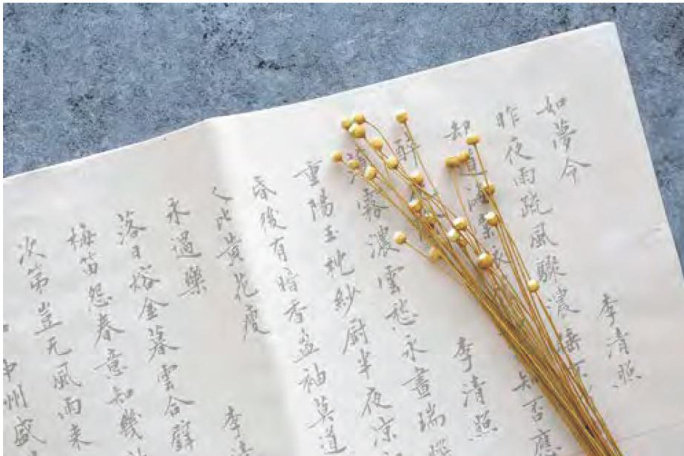 如夢令 李清照
昨夜雨疏風驟濃睡
却道海棠依 知否應
醉 李清照
霧濃雲愁永晝瑞腦
重陽玉枕紗厨半夜涼
昏後有暗香盈袖莫道
人比黄花瘦
永遇樂 李清
落日熔金暮雲合璧
梅笛怨春意知幾
次第豈无風雨来
中州盛